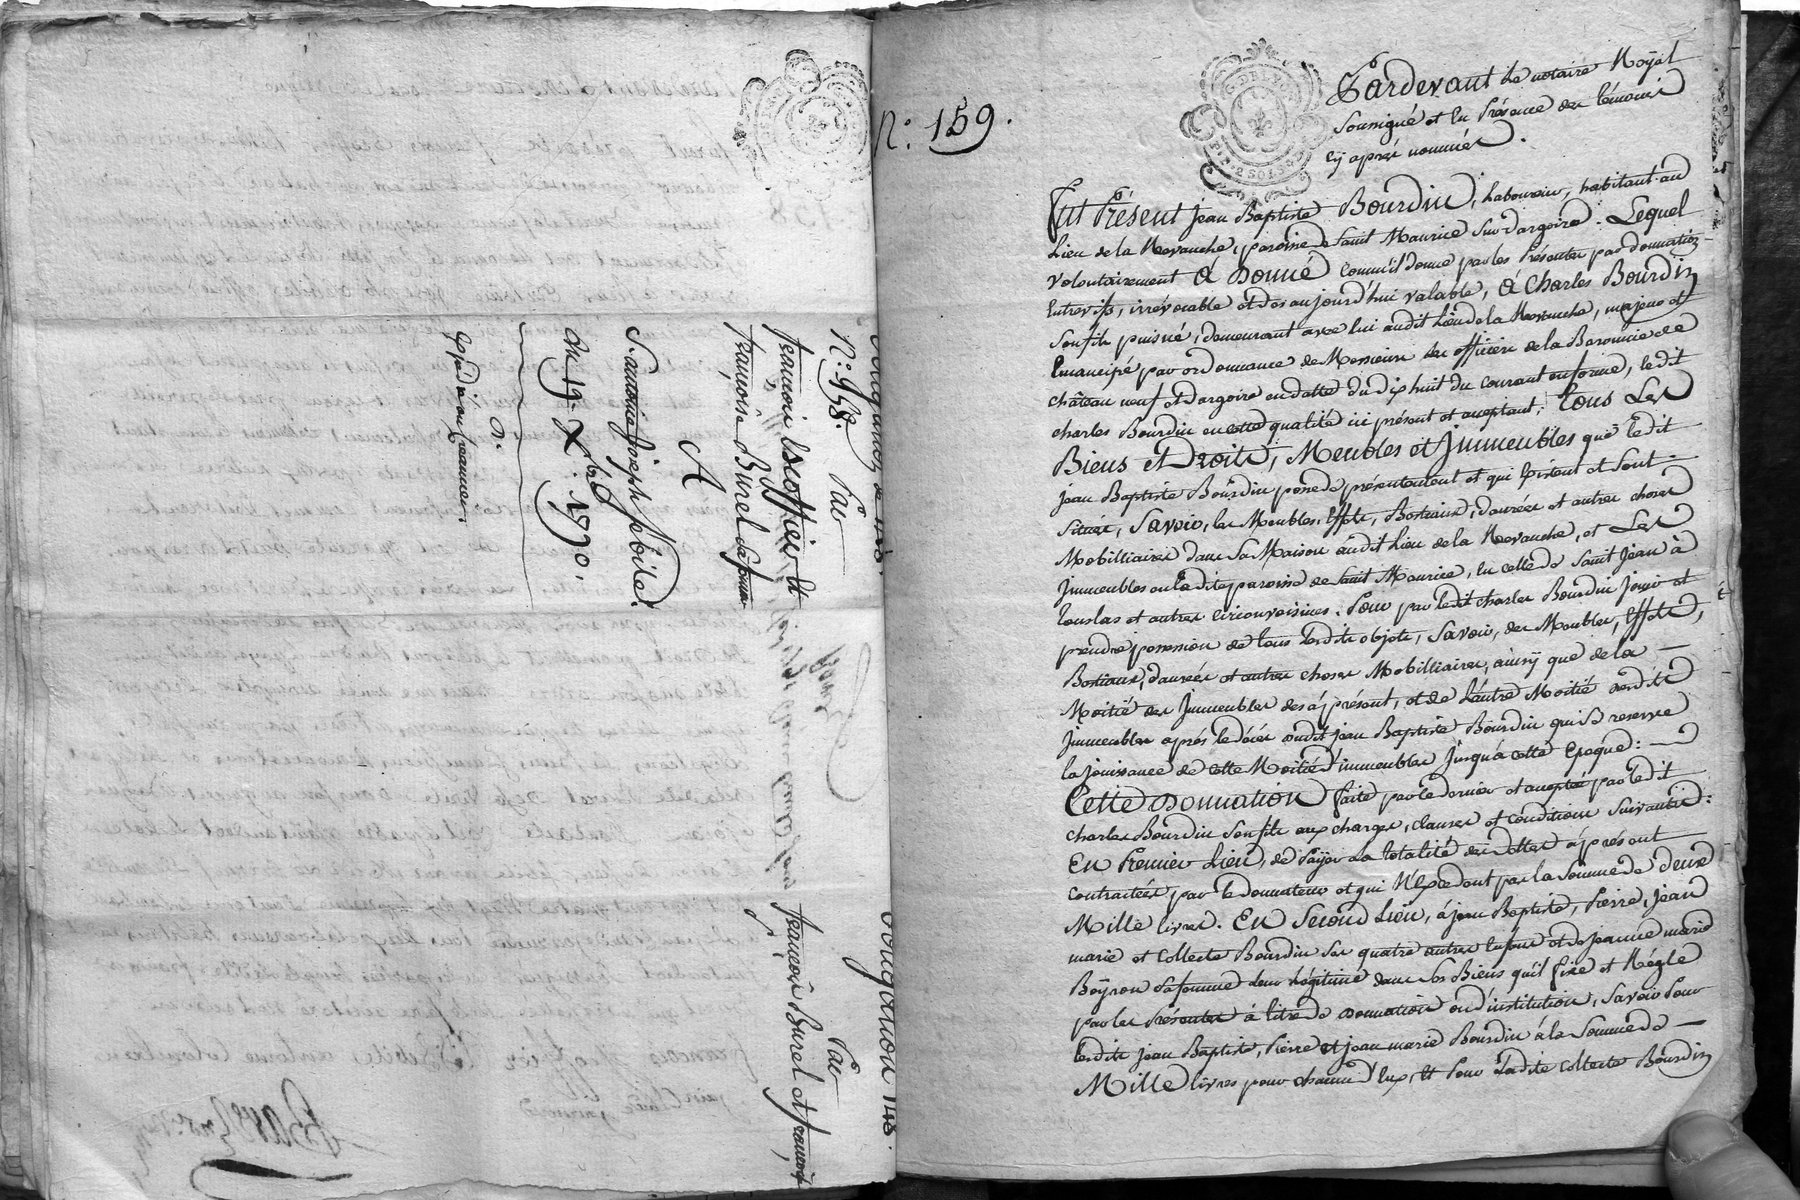 N.° 158. Par
françois Escoffier et
françoise Burel sa femme
A
S.r antoine joseph Nebile.
du 19. X.bre 1770.
G.
Expédié au fermier.
Par
françois Burel et françoise
N.° 159.
G. DE LYON
2 SOLS
Pardevant Le notaire Royal
Soussigné et En Présence des témoins
cy après nommés.
Fut Présent jean Baptiste Bourdin, Laboureur, habitant au
Lieu de la Revanche, paroisse de Saint Maurice Sur dargoire : Lequel
volontairement A Donné Comme il donne par les Présentes par donnation
Entre vifs, irrévocable et dès aujourd'hui valable, A Charles Bourdin
Son fils puisné, demeurant avec lui audit Lieu de la Revanche, majeur et
Emancipé par ordonnance de Messieurs les officiers de la Baronnie de
château neuf et dargoire en datte du dix huit du courant en forme, ledit
charles Bourdin en cette qualité ici présent et acceptant, Tous Les
Biens et Droits, Meubles et Immeubles que ledit
jean Baptiste Bourdin possede présentement et qui Existent et Sont
Situés, Savoir, les Meubles, Effets, Bestiaux, danrées et autres choses
Mobilliaires dans Sa Maison audit Lieu de la Revanche, et Les
Immeubles en ladite paroisse de Saint Maurice, En celle de Saint Jean à
touslas et autres circonvoisines. Pour par ledit charles Bourdin jouir et
prendre possession de tous lesdits objets, Savoir, des Meubles, Effets,
Bestiaux, danrées et autres choses Mobilliaires, ainsy que de la
Moitié des Immeubles dès à présent, et de L'autre Moitié desdits
Immeubles après le décès dudit jean Baptiste Bourdin qui Se reserve
la jouissance de cette Moitié d'immeubles Jusqu'à cette Epoque :
Cette Donnation faite par le dernier et acceptée par ledit
charles Bourdin Son fils aux charges, clauses et conditions Suivantes :
En Premier Lieu, de Païer La totalité des dettes à présent
contractées par le donnateur et qui N'Excedent pas la Somme de deux
Mille livres. En Second Lieu, à jean Baptiste, Pierre, jean
marie et Collecte Bourdin Ses quatre autres Enfans et de jeanne marie
Boyron Sa femme leur Légitime dans Ses Biens qu'il fixe et Règle
par les Présentes à titre de donnation ou d'institution, Savoir Pour
lesdits jean Baptiste, Pierre et jean marie Bourdin à la Somme de
Mille livres pour chacun d'Eux, et Pour Ladite Collecte Bourdin